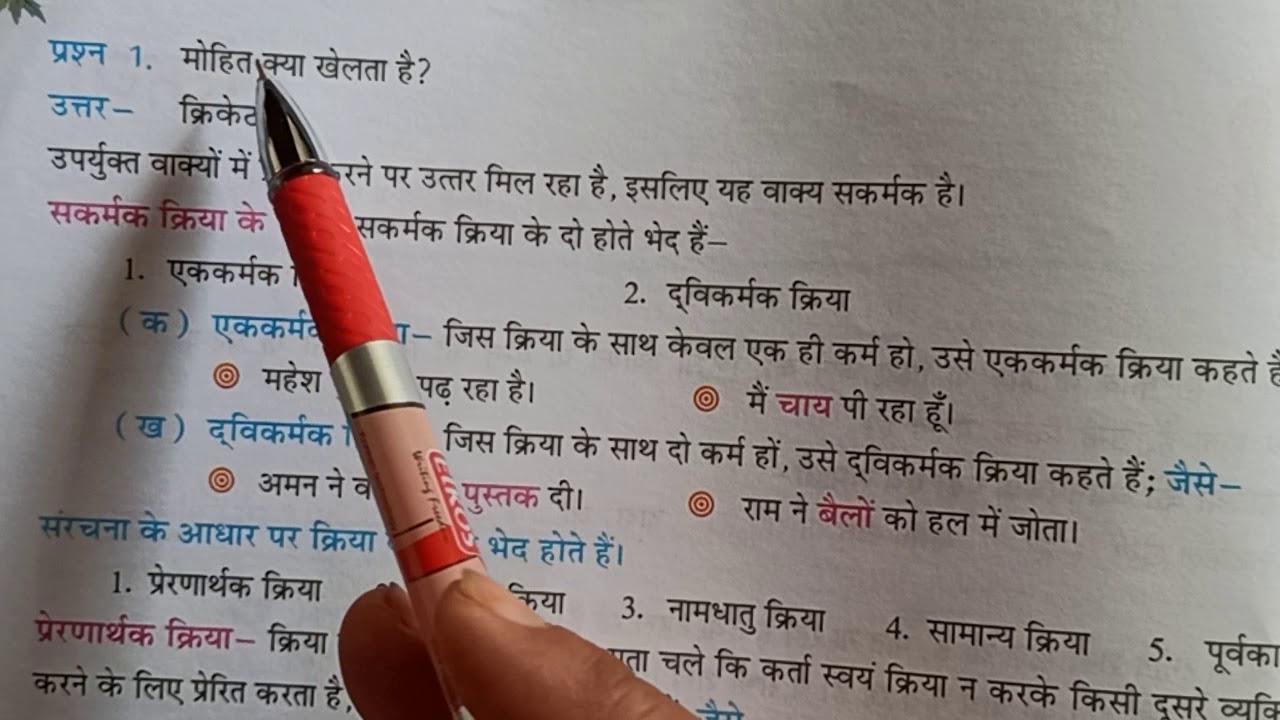 प्रश्न 1. मोहित क्या खेलता है?
उत्तर– क्रिकेट
उपर्युक्त वाक्यों में रने पर उत्तर मिल रहा है, इसलिए यह वाक्य सकर्मक है।
सकर्मक क्रिया के सकर्मक क्रिया के दो होते भेद हैं–
1. एककर्मक 2. द्विकर्मक क्रिया
(क) एककर्मक – जिस क्रिया के साथ केवल एक ही कर्म हो, उसे एककर्मक क्रिया कहते
महेश पढ़ रहा है। मैं चाय पी रहा हूँ।
(ख) द्विकर्मक जिस क्रिया के साथ दो कर्म हों, उसे द्विकर्मक क्रिया कहते हैं; जैसे–
अमन ने पुस्तक दी। राम ने बैलों को हल में जोता।
संरचना के आधार पर क्रिया भेद होते हैं।
1. प्रेरणार्थक क्रिया क्रिया 3. नामधातु क्रिया 4. सामान्य क्रिया 5. पूर्वका
प्रेरणार्थक क्रिया– क्रिया चले कि कर्ता स्वयं क्रिया न करके किसी दूसरे व्यक्ति
करने के लिए प्रेरित करता है, जैसे